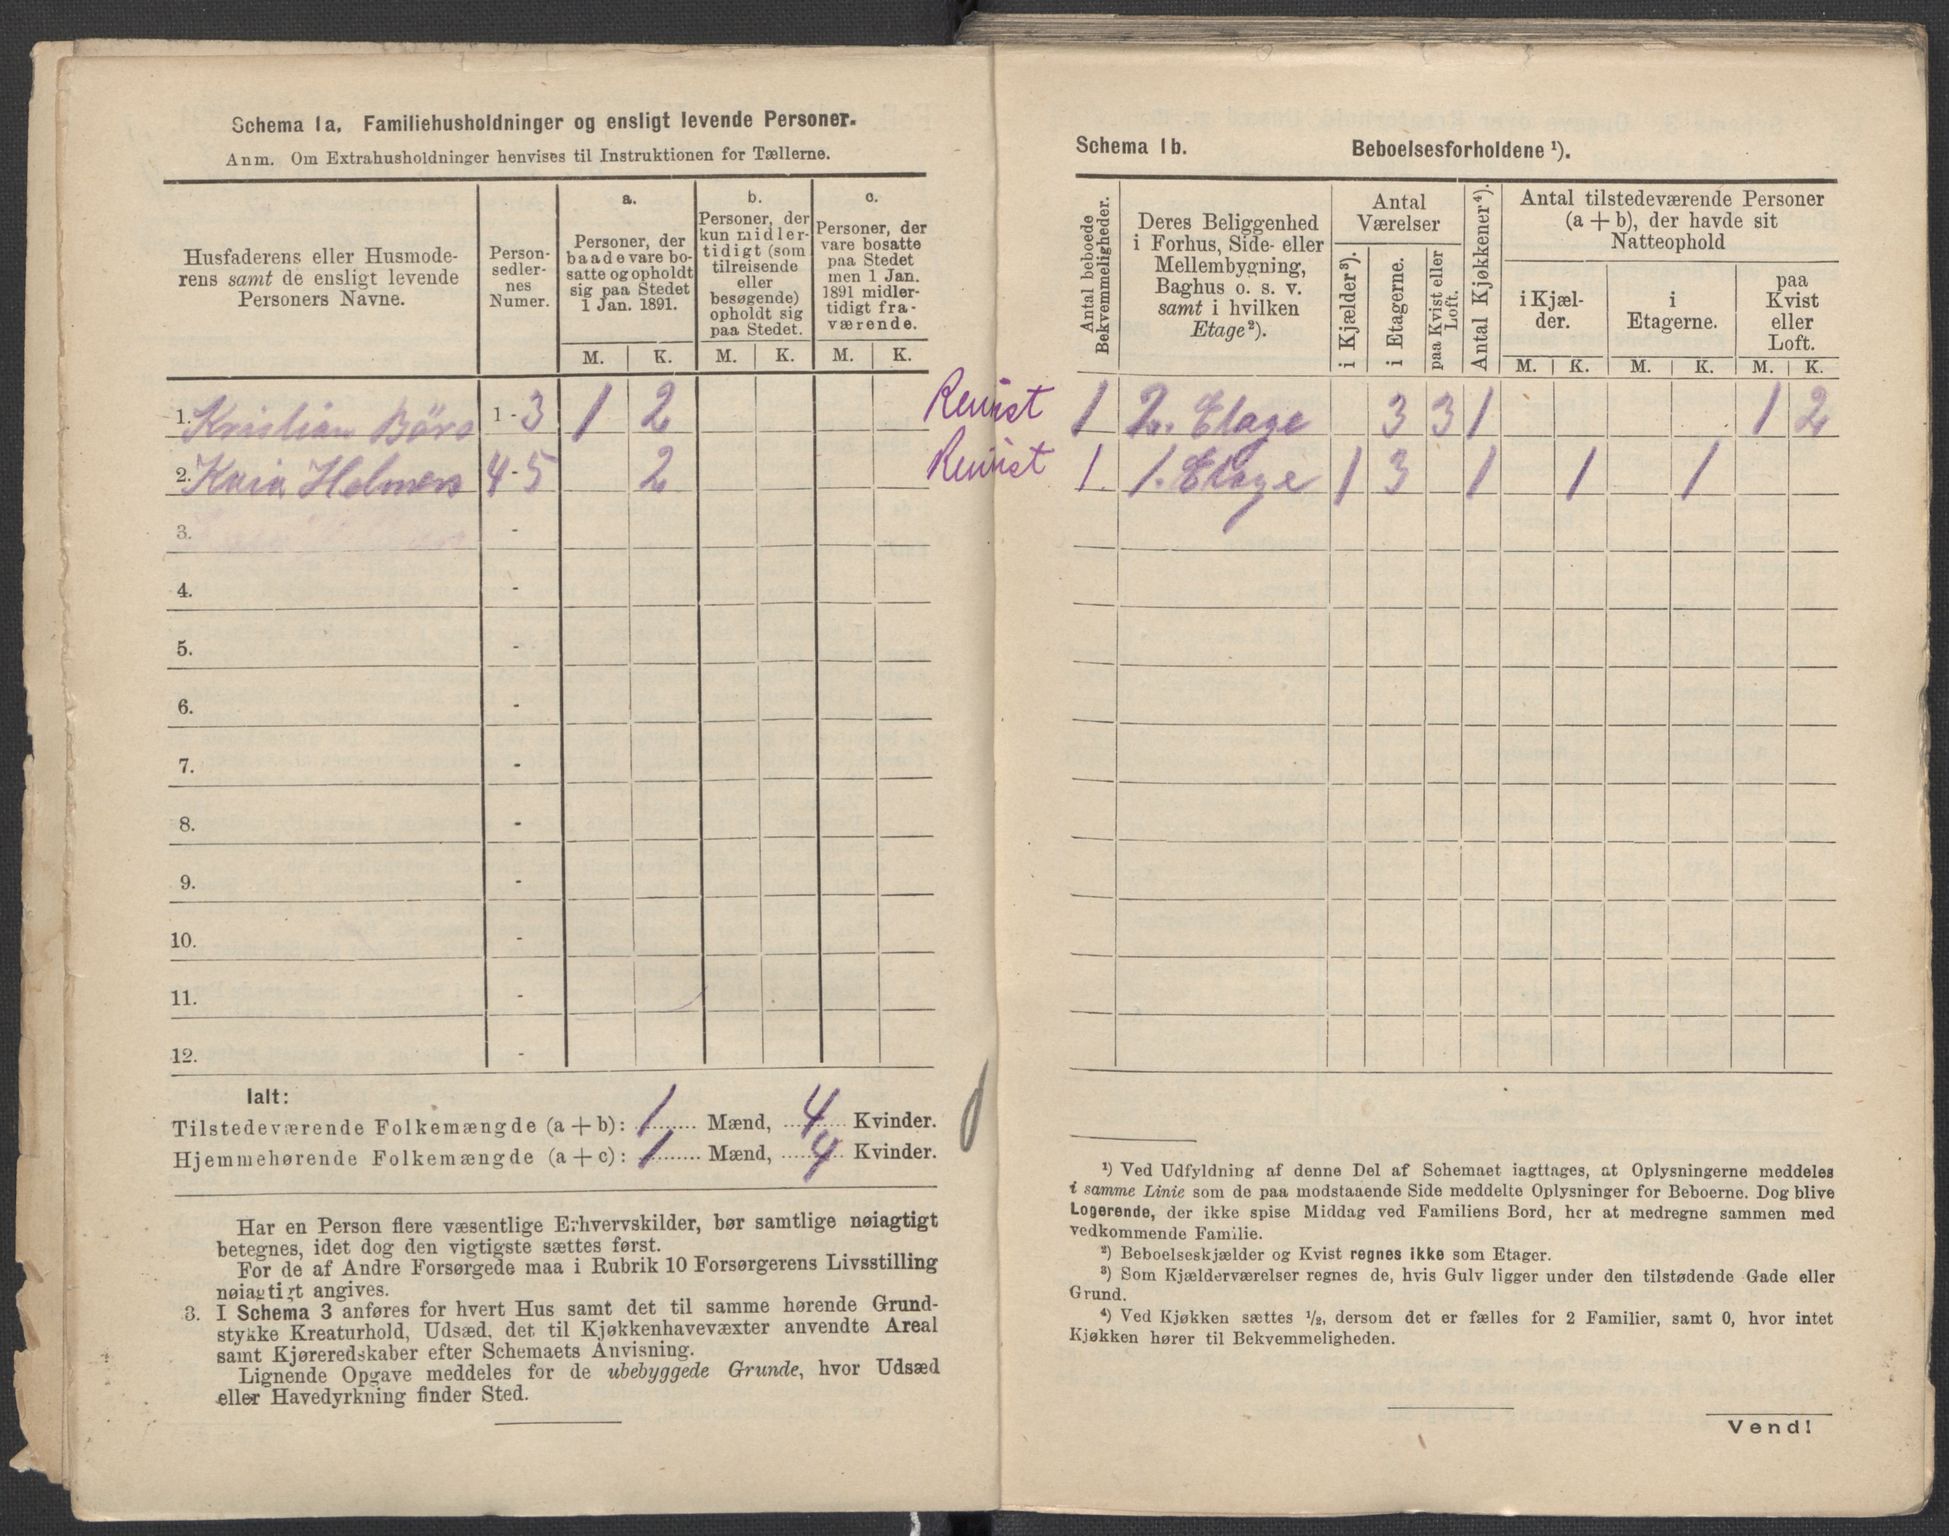 Schema 1a. Familiehusholdninger og ensligt levende Personer.
Anm. Om Extrahusholdninger henvises til Instruktionen for Tællerne.
Husfaderens eller Husmoderens samt de ensligt levende Personers Navne.
Personsedlernes Numer.
a.
Personer, der baade vare bosatte og opholdt sig paa Stedet 1 Jan. 1891.
b.
Personer, der kun midlertidigt (som tilreisende eller besøgende) opholdt sig paa Stedet.
c.
Personer, der vare bosatte paa Stedet men 1 Jan. 1891 midlertidigt fraværende.
M. K. M. K. M. K.
1. Kristian Börs 1-3 1 2
2. Holmers 4-5 2
3. -
4. -
5. -
6. -
7. -
8. -
9. -
10. -
11. -
12. -
Ialt:
Tilstedeværende Folkemængde (a + b): 1 Mænd, 4 Kvinder.
Hjemmehørende Folkemængde (a + c): 1 Mænd, 4 Kvinder.
Har en Person flere væsentlige Erhvervskilder, bør samtlige nøiagtigt
betegnes, idet dog den vigtigste sættes først.
For de af Andre Forsørgede maa i Rubrik 10 Forsørgerens Livsstilling
nøiagtigt angives.
3. I Schema 3 anføres for hvert Hus samt det til samme hørende Grund-
stykke Kreaturhold, Udsæd, det til Kjøkkenhavevæxter anvendte Areal
samt Kjøreredskaber efter Schemaets Anvisning.
Lignende Opgave meddeles for de ubebyggede Grunde, hvor Udsæd
eller Havedyrkning finder Sted.
Schema 1b. Beboelsesforholdene ¹).
Antal beboede Bekvemmeligheder.
Deres Beliggenhed i Forhus, Side- eller Mellembygning, Baghus o. s. v. samt i hvilken Etage²).
Antal Værelser
i Kjælder³).
i Etagerne.
paa Kvist eller Loft.
Antal Kjøkkener⁴).
Antal tilstedeværende Personer (a + b), der havde sit Natteophold
i Kjælder.
i Etagerne.
paa Kvist eller Loft.
M. K. M. K. M. K.
1 2. Etage 3 3 1 1 2
1. 1. Etage 1 3 1 1 1
¹) Ved Udfyldning af denne Del af Schemaet iagttages, at Oplysningerne meddeles
i samme Linie som de paa modstaaende Side meddelte Oplysninger for Beboerne. Dog blive
Logerende, der ikke spise Middag ved Familiens Bord, her at medregne sammen med
vedkommende Familie.
²) Beboelseskjælder og Kvist regnes ikke som Etager.
³) Som Kjælderværelser regnes de, hvis Gulv ligger under den tilstødende Gade eller
Grund.
⁴) Ved Kjøkken sættes ½, dersom det er fælles for 2 Familier, samt 0, hvor intet
Kjøkken hører til Bekvemmeligheden.
Vend!